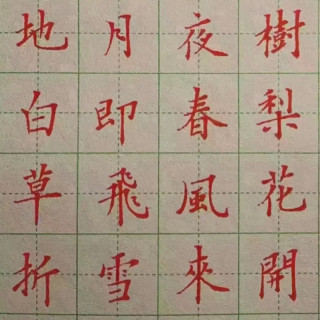 地白草折
月即飛雪
夜春風來
樹梨花開